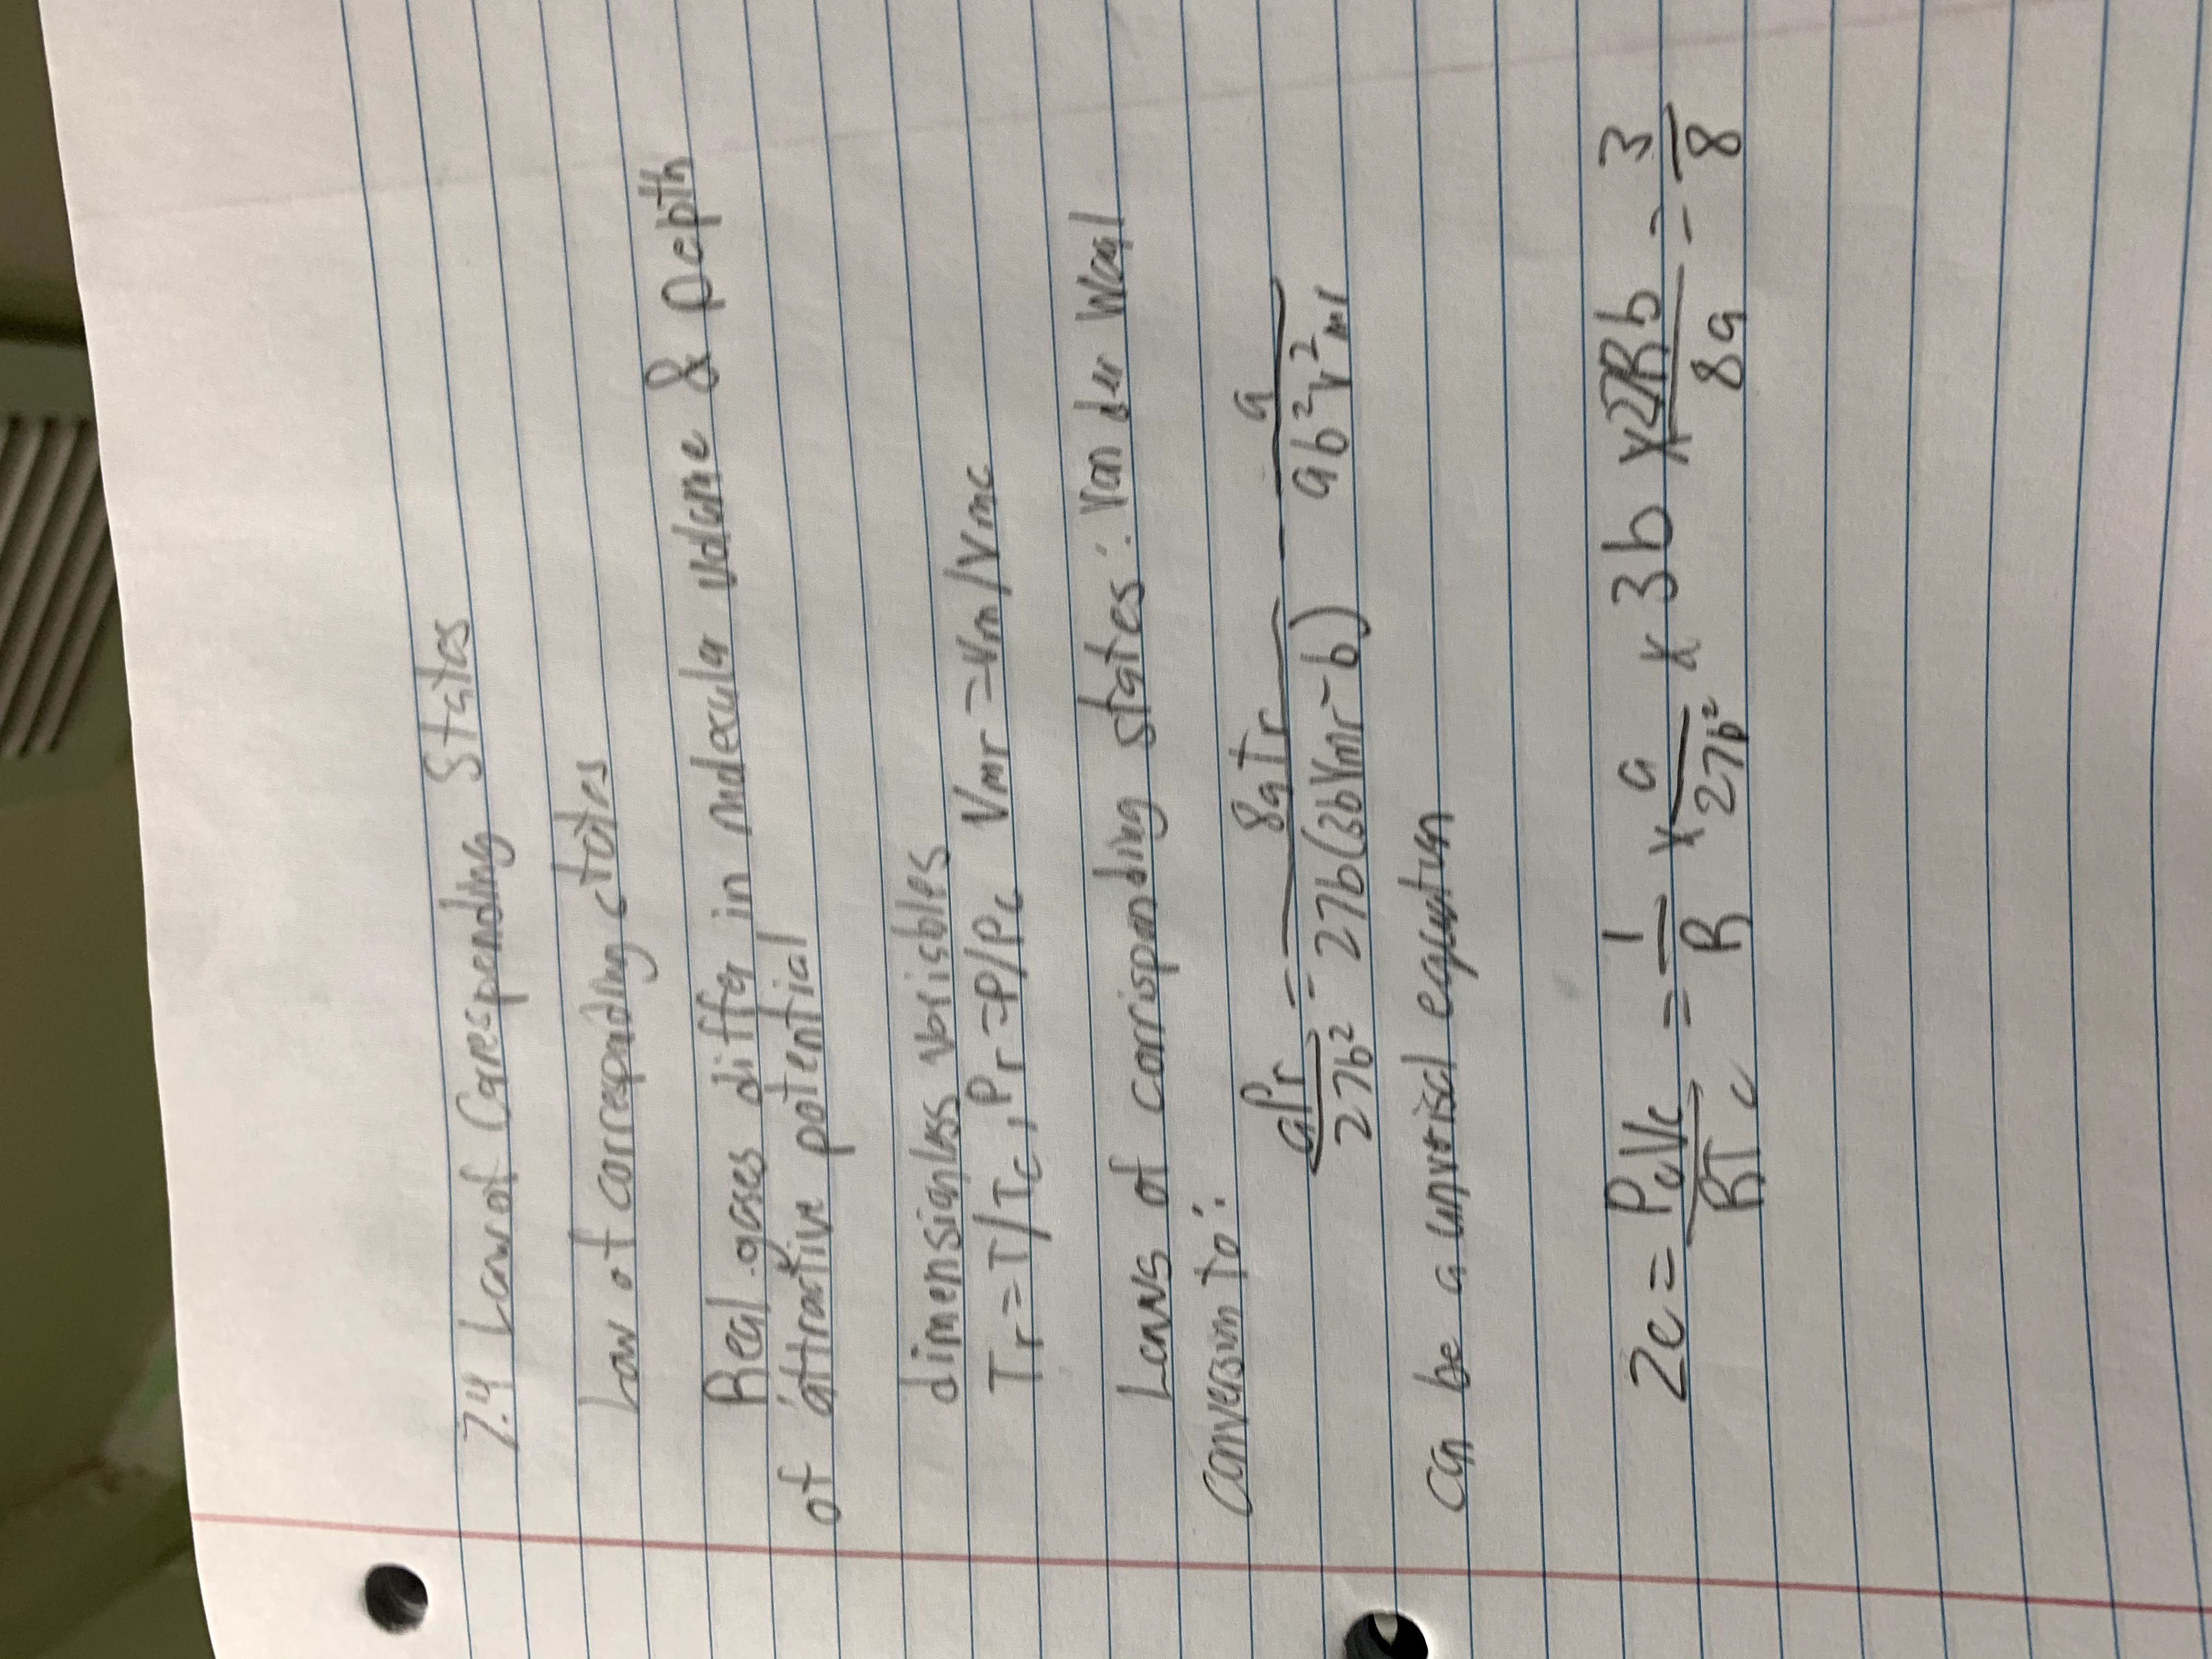 7.4 Law of Corresponding States
Law of correspnding states
Real gases differ in molecular volume & Depth
of attractive potential
dimensionless variables
Tr = T/Tc, Pr = P/Pc Vmr = Vm/Vmc
Laws of corrisponding states: Van der Waal
conversion to:
aPr/27b² = 8aTr/27b(3bVmr-b) - a/9b²V²mr
can be a equation
Zc = PcVc/RTc = 1/R x a/27b² x 3b x 27Rb/8a = 3/8